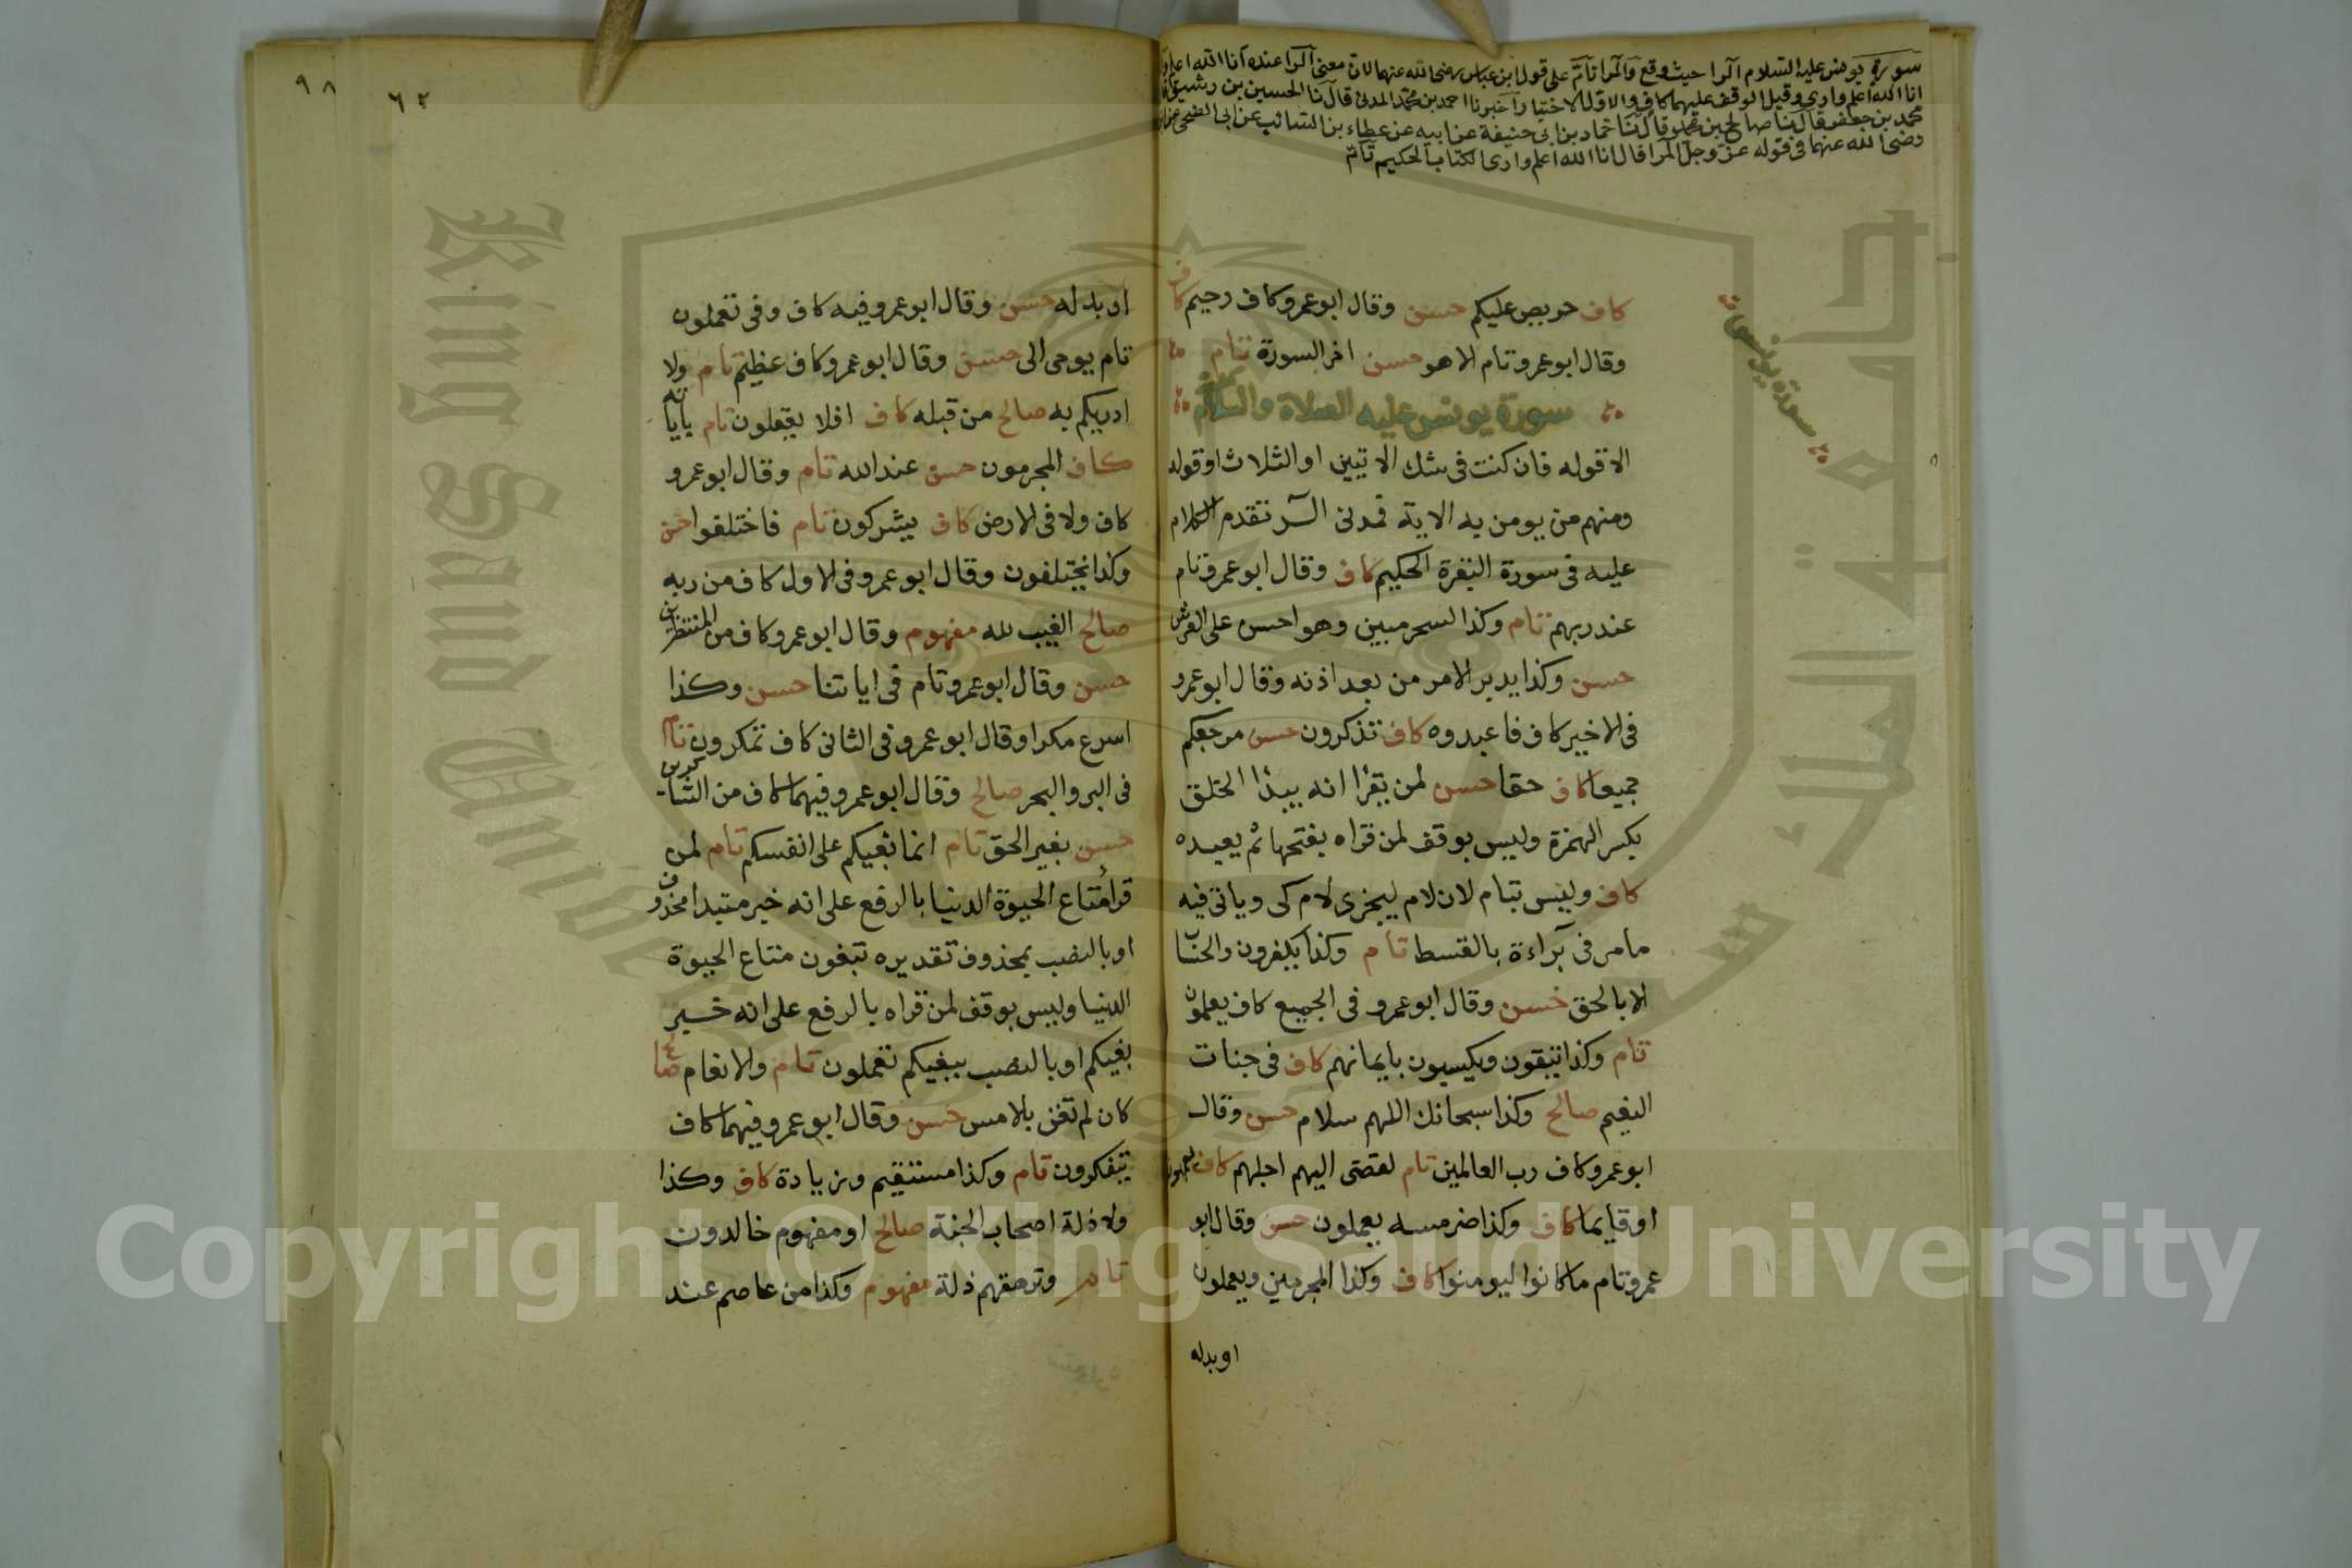 سورة يونس عليه السلام الرا حيث وقع والمرا تام على قول ابن عباس رضى الله عنهما لان معنى الرا عنده انا الله اعلم
انا الله اعلم وارى وقيل الوقف عليهما كاف والاول الاختيار اخبرنا احمد بن محمد المدنى قال نا الحسين بن رشيق
محمد بن جعفر قال نا صالح بن محمد وقال نا حماد بن ابى حنيفة عن ابيه عن عطاء بن السائب عن ابى الضحى عن
رضى الله عنهما فى قوله عز وجل المرا قال انا الله اعلم وارى الكتاب الحكيم تام
سورة يونس
كاف حريص عليكم حسن وقال ابو عمرو كاف رحيم كاف
وقال ابو عمرو تام الا هو حسن اخر السورة تام
سورة يونس عليه الصلاة والسلام
الا قوله فان كنت فى شك الايتين او الثلاث او قوله
ومنهم من يومن به الاية فمدنى الر تقدم الكلام
عليه فى سورة البقرة الحكيم كاف وقال ابو عمرو تام
عند ربهم تام وكذا لسحر مبين وهو احسن على العرش
حسن وكذا يدبر الامر من بعد اذنه وقال ابو عمرو
فى الاخير كاف فاعبدوه كاف تذكرون حسن مرجعكم
جميعا كاف حقا حسن لمن يقرا انه يبدا الخلق
بكسر الهمزة وليس بوقف لمن قراه بفتحها ثم يعيده
كاف وليس بتام لان لام ليجزى لام كى وياتى فيه
ما مر فى براءة بالقسط تام وكذا يكفرون والحساب
الا بالحق حسن وقال ابو عمرو فى الجميع كاف يعلمون
تام وكذا يتقون ويكسبون بايمانهم كاف فى جنات
النعيم صالح وكذا سبحانك اللهم سلام حسن وقال
ابو عمرو كاف رب العالمين تام لقضى اليهم اجلهم كاف يعمهون
او قايما كاف وكذا ضر مسه يعملون حسن وقال ابو
عمرو تام ما كانوا ليومنوا كاف وكذا المجرمين ويعملون
او بدله
٩٨
٦٢
او بدله حسن وقال ابو عمرو فيه كاف وفى تعملون
تام يوحى الى حسن وقال ابو عمرو كاف عظيم تام ولا
ادريكم به صالح من قبله كاف افلا يعقلون تام باياته
كاف المجرمون حسن عند الله تام وقال ابو عمرو
كاف ولا فى الارض كاف يشركون تام فاختلفوا حسن
وكذا يختلفون وقال ابو عمرو فى الاول كاف من ربه
صالح الغيب لله مفهوم وقال ابو عمرو كاف من المنتظرين
حسن وقال ابو عمرو تام فى اياتنا حسن وكذا
اسرع مكرا وقال ابو عمرو فى الثانى كاف تمكرون تام
فى البر والبحر صالح وقال ابو عمرو فيهما كاف من الشاكرين
حسن بغير الحق تام انما بغيكم على انفسكم تام لمن
قرا متاع الحيوة الدنيا بالرفع على انه خبر مبتدا محذوف
او بالنصب بمحذوف تقديره تبغون متاع الحيوة
الدنيا وليس بوقف لمن قراه بالرفع على انه خبر
بغيكم او بالنصب ببغيكم تعملون تام والانعام صالح
كان لم تغن بالامس حسن وقال ابو عمرو فيهما كاف
يتفكرون تام وكذا مستقيم وزيادة كاف وكذا
ولا ذلة اصحاب الجنة صالح او مفهوم خالدون
تام وترهقهم ذلة مفهوم وكذا من عاصم عند
King Saud University
جامعة الملك سعود
Copyright © King Saud University